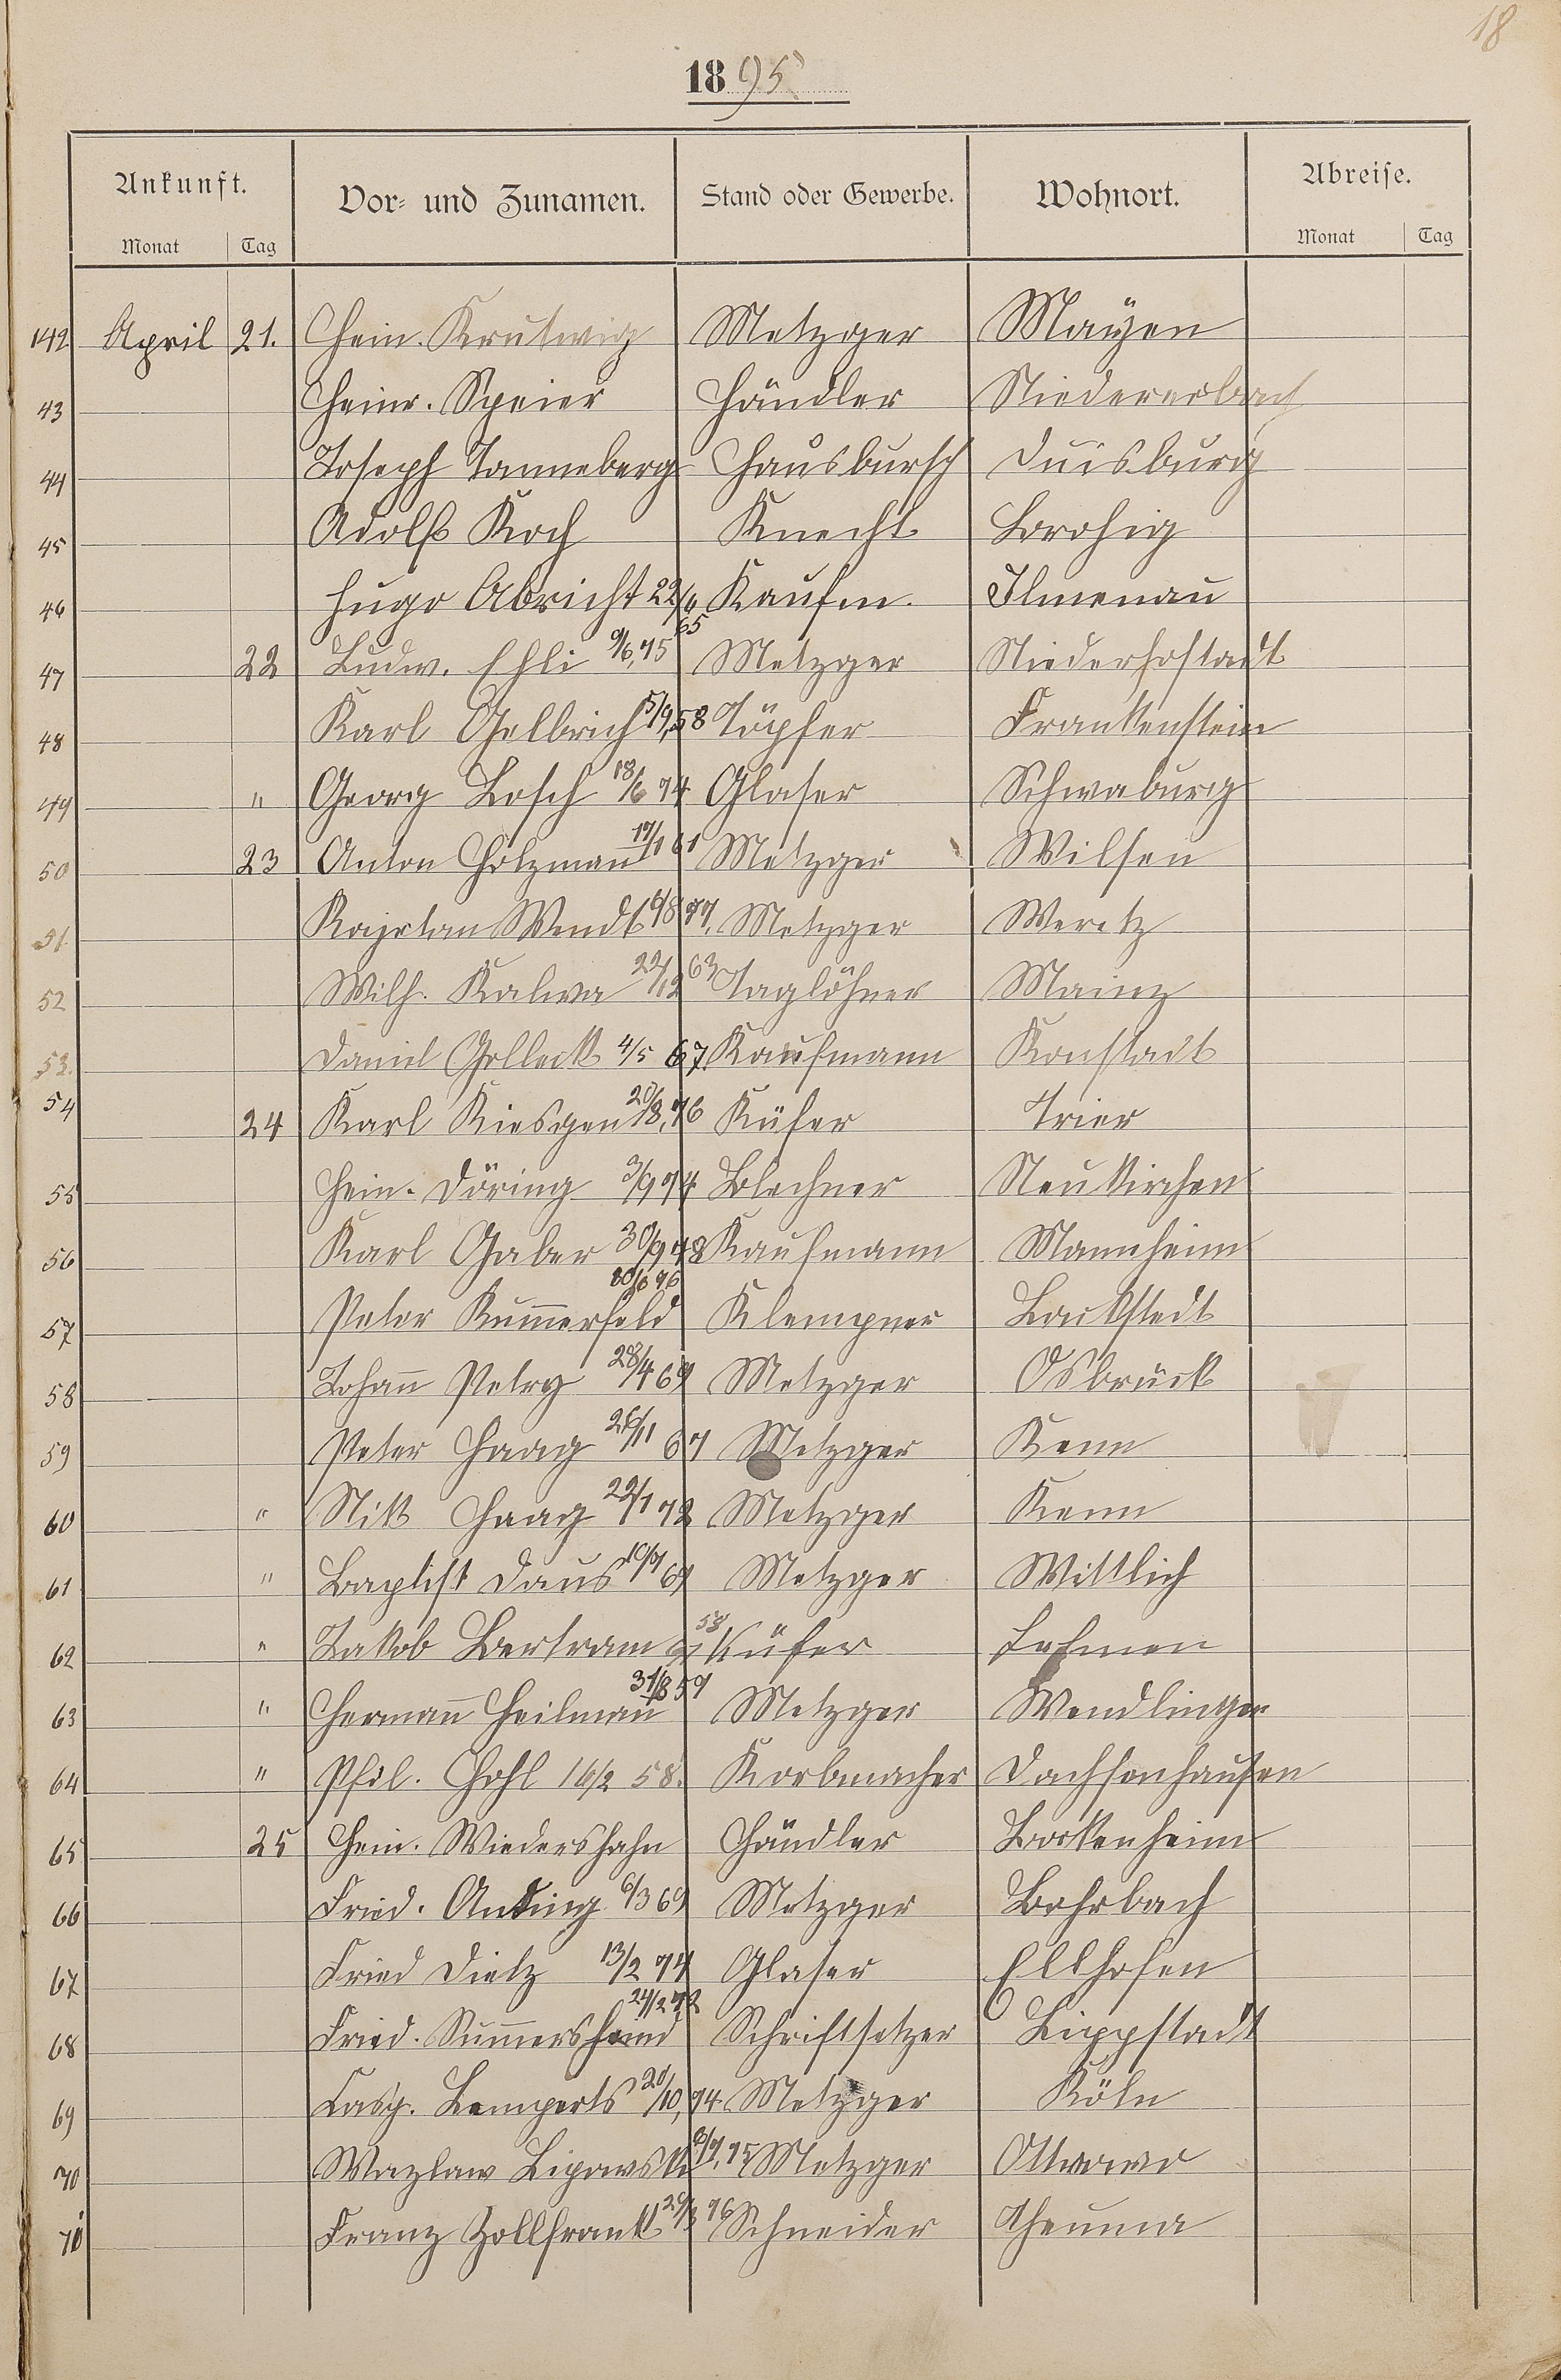 18
1895
Ankunft. Vor- und Zunamen. Stand oder Gewerbe. Wohnort. Abreise.
Monat Tag Monat Tag
142 April 21. Hein. Krutwig Metzger Mayen
43 Heinr. Speier Händler Niedererlbach
44 Joseph Tanneberg Hausbursch Duisburg
45 Adolf Koch Knecht
46 Hugo Abricht 22/6 65 Kaufm. Ilmenau
47 22 Ludw. Ehli 9/6,75 Metzger Niederhostadt
48 Karl Gellrich 5/9,58 Töpfer Frankenstein
49 " Georg Losch 18/6 74 Glaser Schwaburg
50 23 Anton Holzmann 17/1 61 Metzger Wilsen
51. Wendt 6/8 77. Metzger Weretz
52 Wilh. Kalwa 22/12 63 Taglöhner Mainz
53. Daniel Golleck 4/5 67 Kaufmann Konstadt
54 24 Karl Kiesgen 20/8,76 Küfer Trier
55 Hein. Döring 3/9 74 Blechner Neukirchen
56 Karl Gaber 30/9 78 Kaufmann Mannheim
57 Peter Kummerfeld 10/6 76 Klempner Bockstedt
58 Johann Petry 28/4 69 Metzger Osbrück
59 Peter Haag 26/11 67 Metzger Kenn
60 " Nik Haag 22/1 72 Metzger Kenn
61 " Baptist Daus 10/7 69 Metzger Wittlich
62 " Jakob Bertram 58 Küfer Lehmen
63 " Hermann Heilmann 31/8 59 Metzger Wendlingen
64 " Phil. Hohl 16/2 58. Korbmacher Dachsenhausen
65 25 Hein. Wiedershahn Händler Bockenheim
66 Fried. Anding 6/3 69 Metzger Bohrbach
67 Fried Dietz 13/2 74 Glaser Ellhofen
68 Fried. 24/2 72 Schriftsetzer Lippstadt
69 Casp. Lemperts 20/10,74 Metzger Köln
70 Wazlaw Lipowski 8/7,75 Metzger
71 Franz Zollfrank 29/3 76 Schneider Theuma